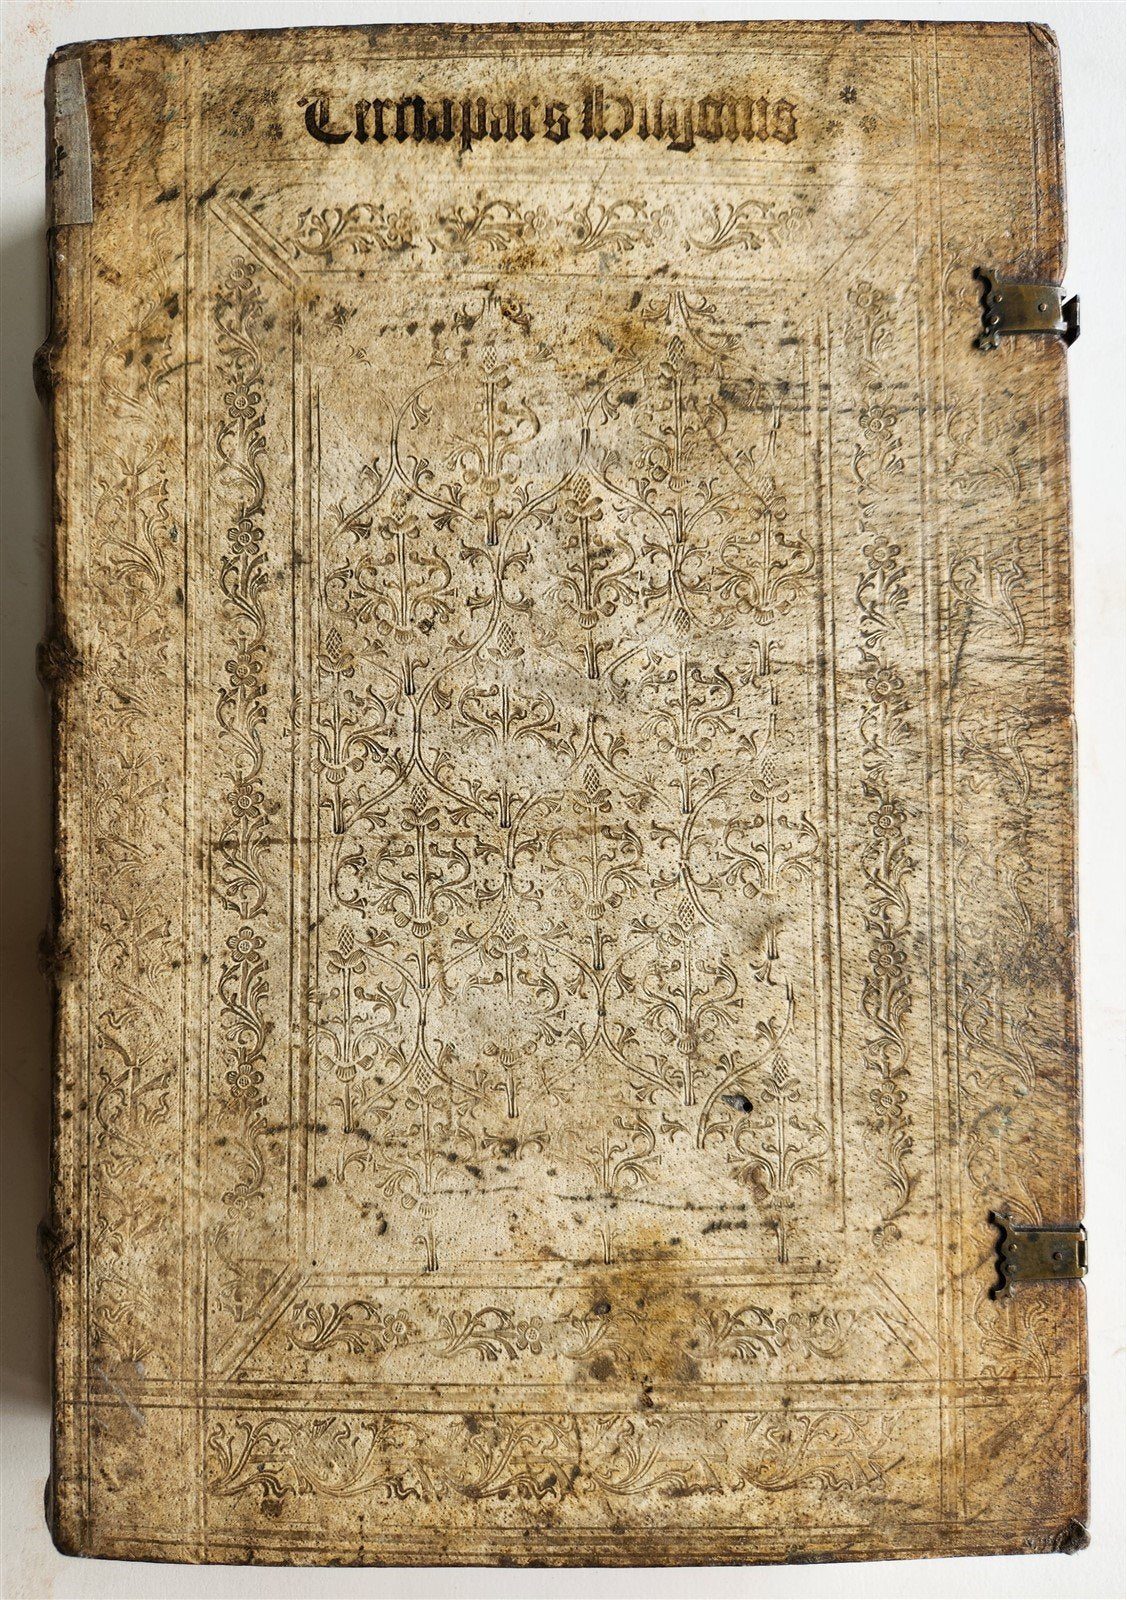 Terciapars Hugonis